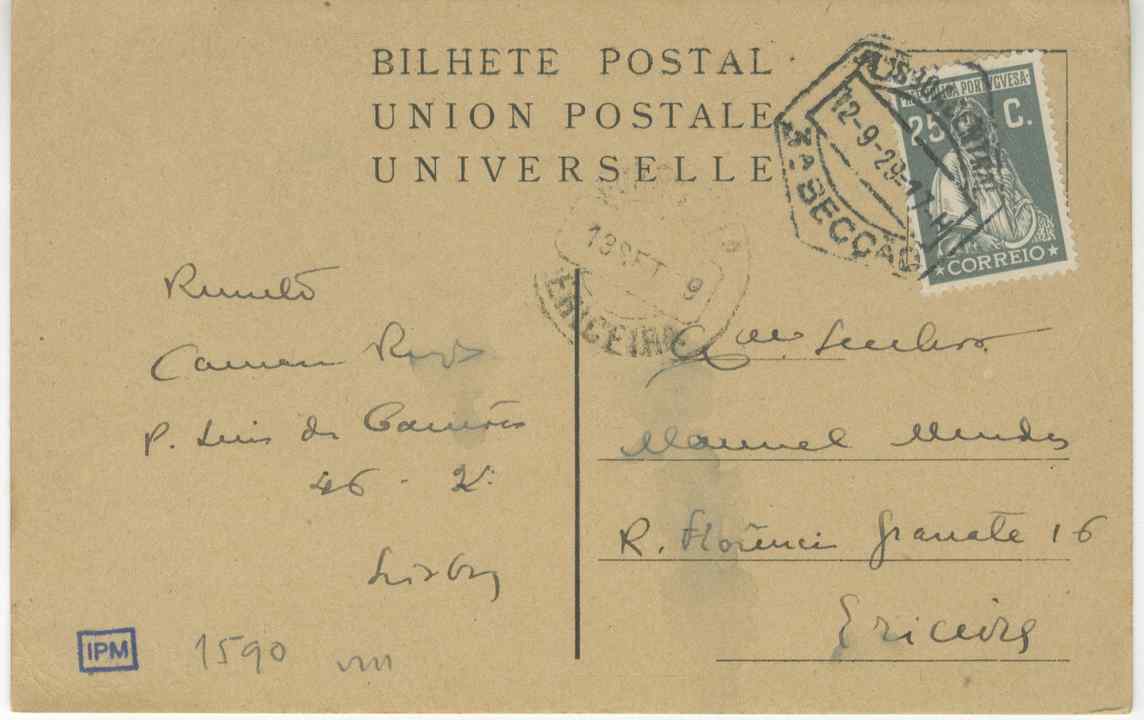 BILHETE POSTAL
UNION POSTALE
UNIVERSELLE
LISBOA CENTRAL
12-9-29-17-H
3ª SECÇÃO
REPUBLICA PORTVGVESA
25 C.
CORREIO
13 SET 9
ERICEIRA
Carmen
P. Luis de Camões
46 - 2º
Lisboa
Exmo. Senhor
Manuel Mendes
R. Florencio Granate 16
Ericeira
IPM
1590